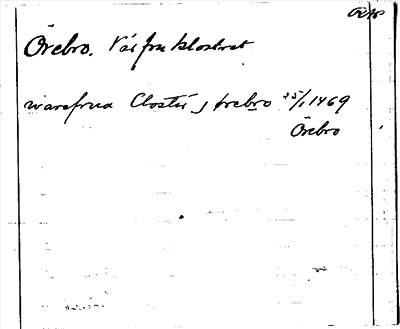 Örebro. Vår fru klostret
warefrua Clostir j ørebro 25/1 1469
Örebro